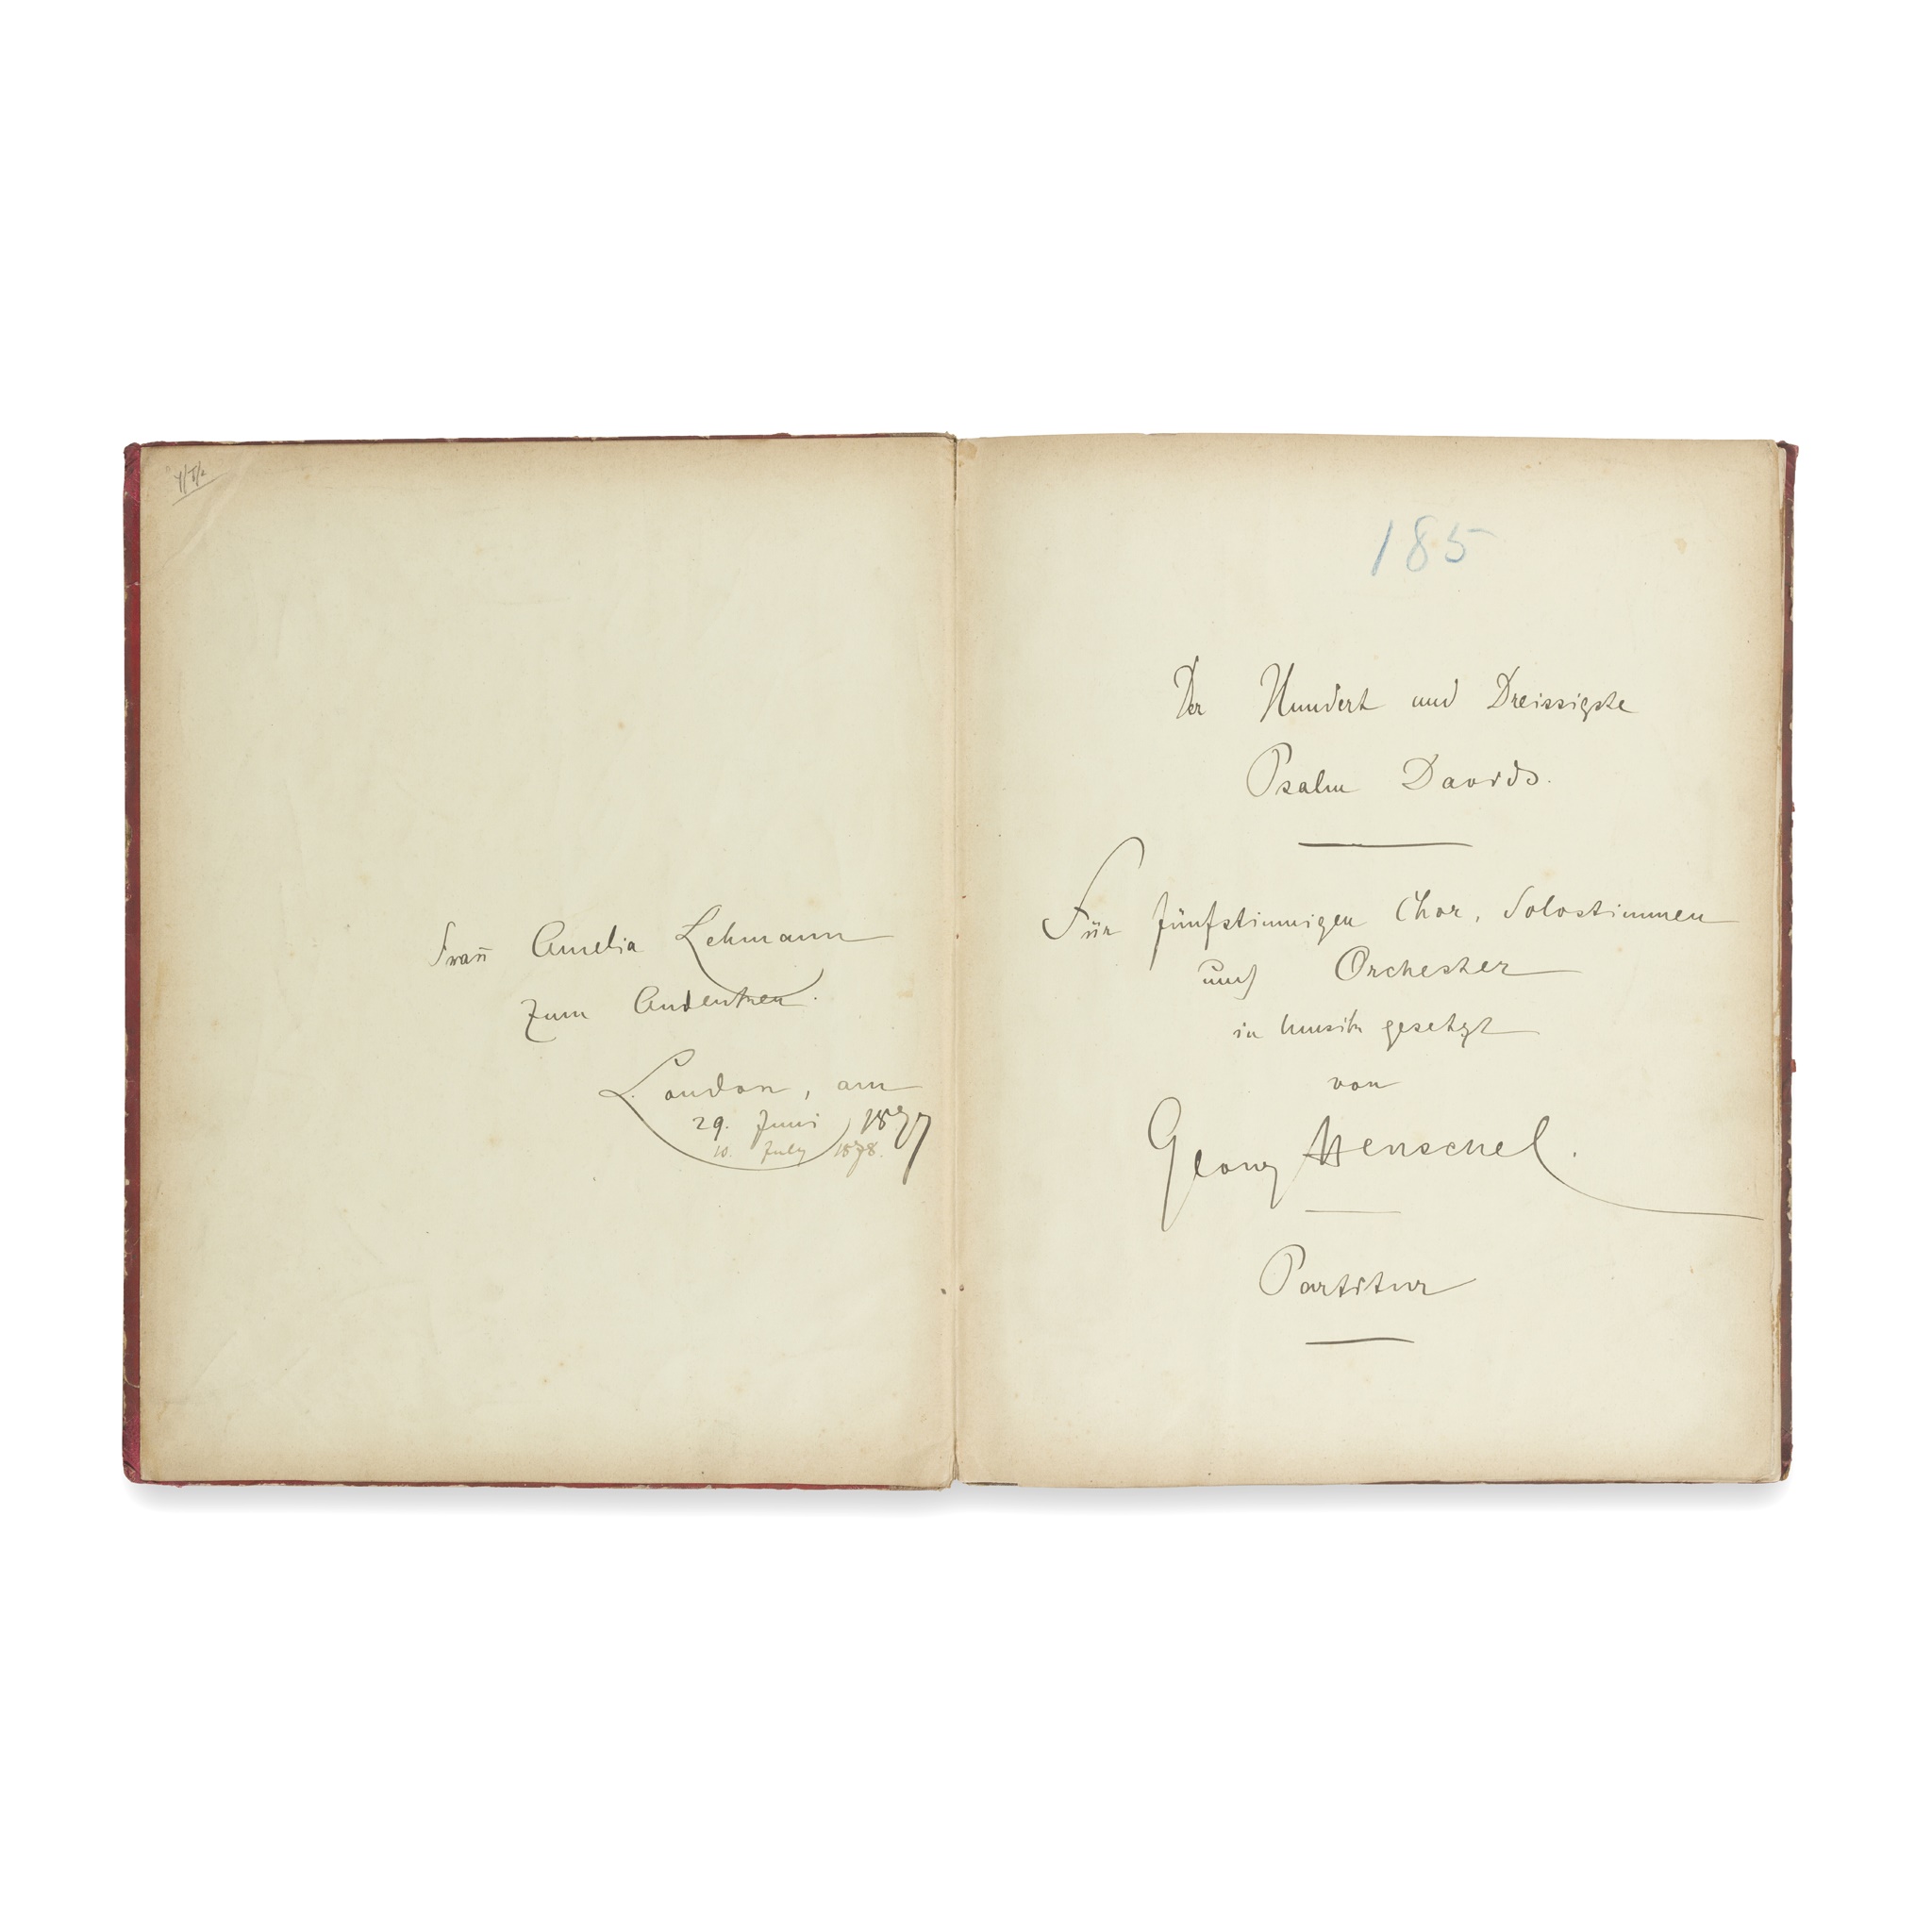 Frau Amelia Lehmann
zum Andenken.
London, am
29. Juni 1877
10. July 1878.
185
Der Hundert und Dreissigste
Psalm Davids.
Für fünfstimmigen Chor, Solostimmen
und Orchester
in Musik gesetzt
von
Georg Henschel.
Partitur